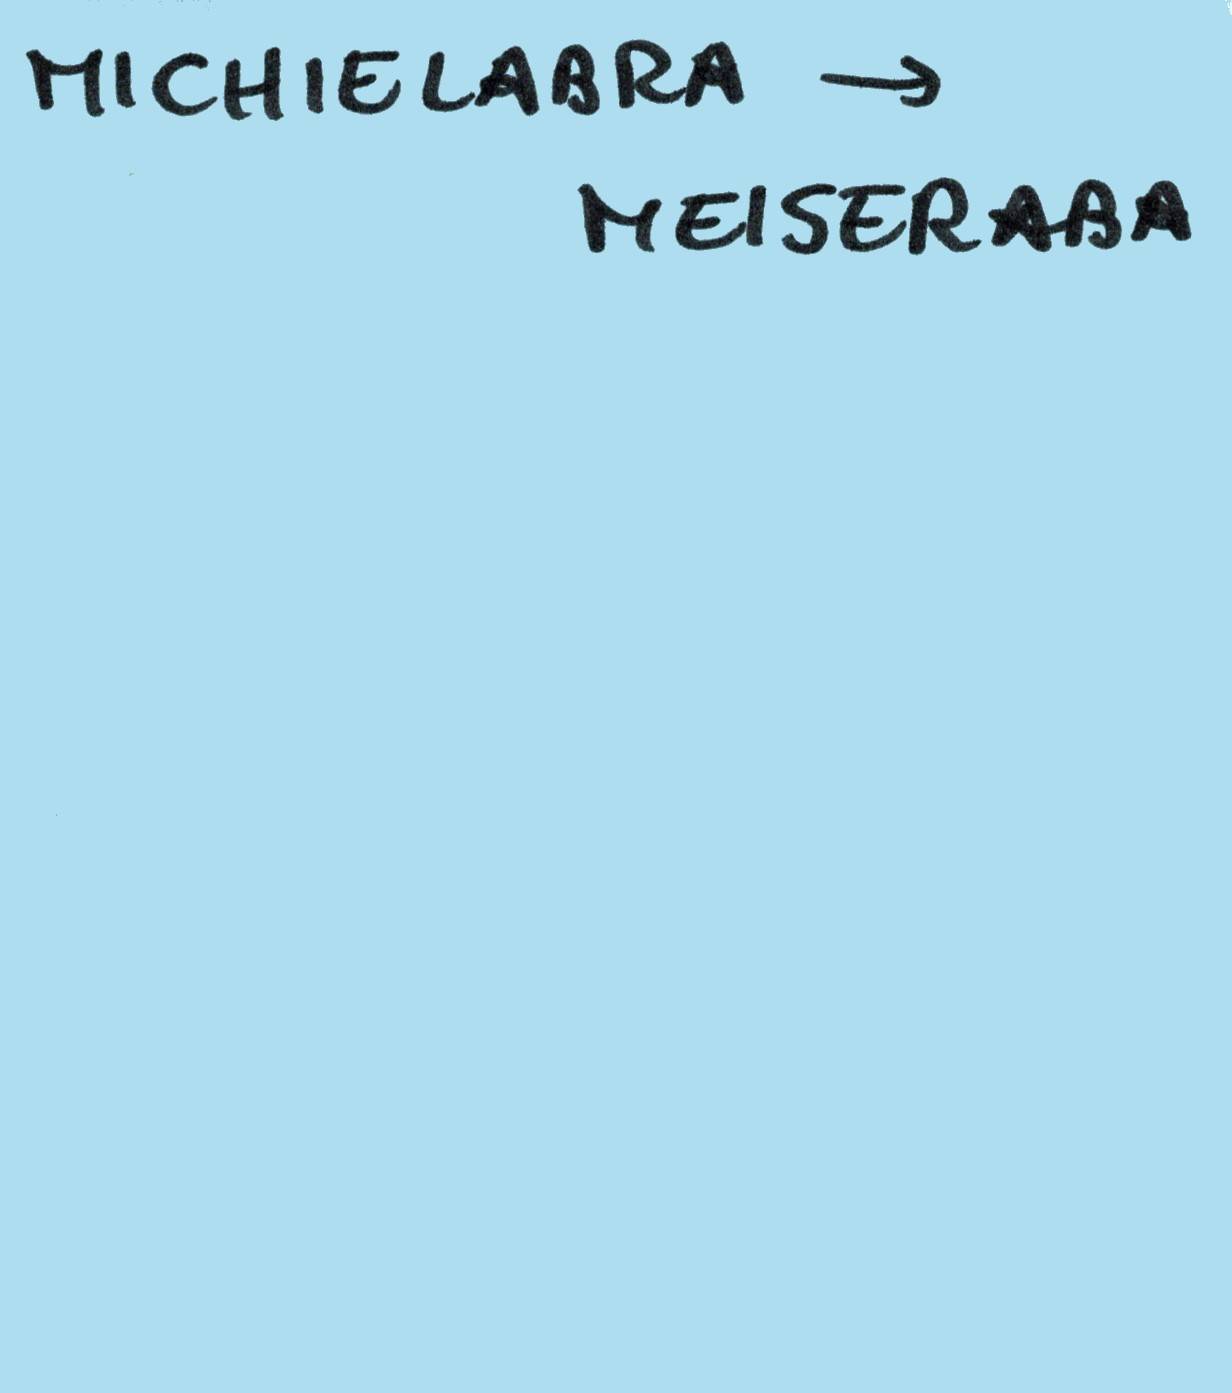 MICHIELABRA →
MEISERABA